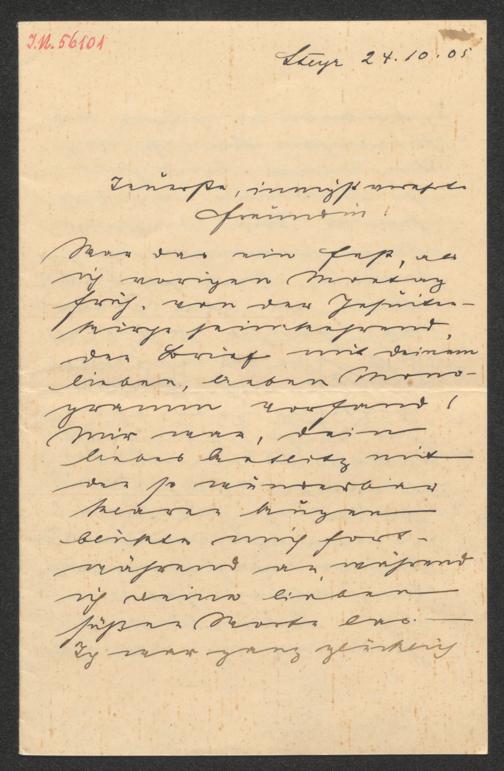 I.N. 56101
Steyr 24.10.05
Teuerste, innigst verehrte
Freundin!
War das ein Fest, als
ich vorigen Montag
früh, von der Jesuiten-
kirche heimkehrend,
den Brief mit deinem
lieben, lieben Mono-
gramm vorfand!
Mir war, dein
liebes Antlitz mit
den so wunderbar
klaren Augen
blickte mich fort-
während an, während
ich deine lieben
süßen Worte las. —
Ich war ganz glücklich